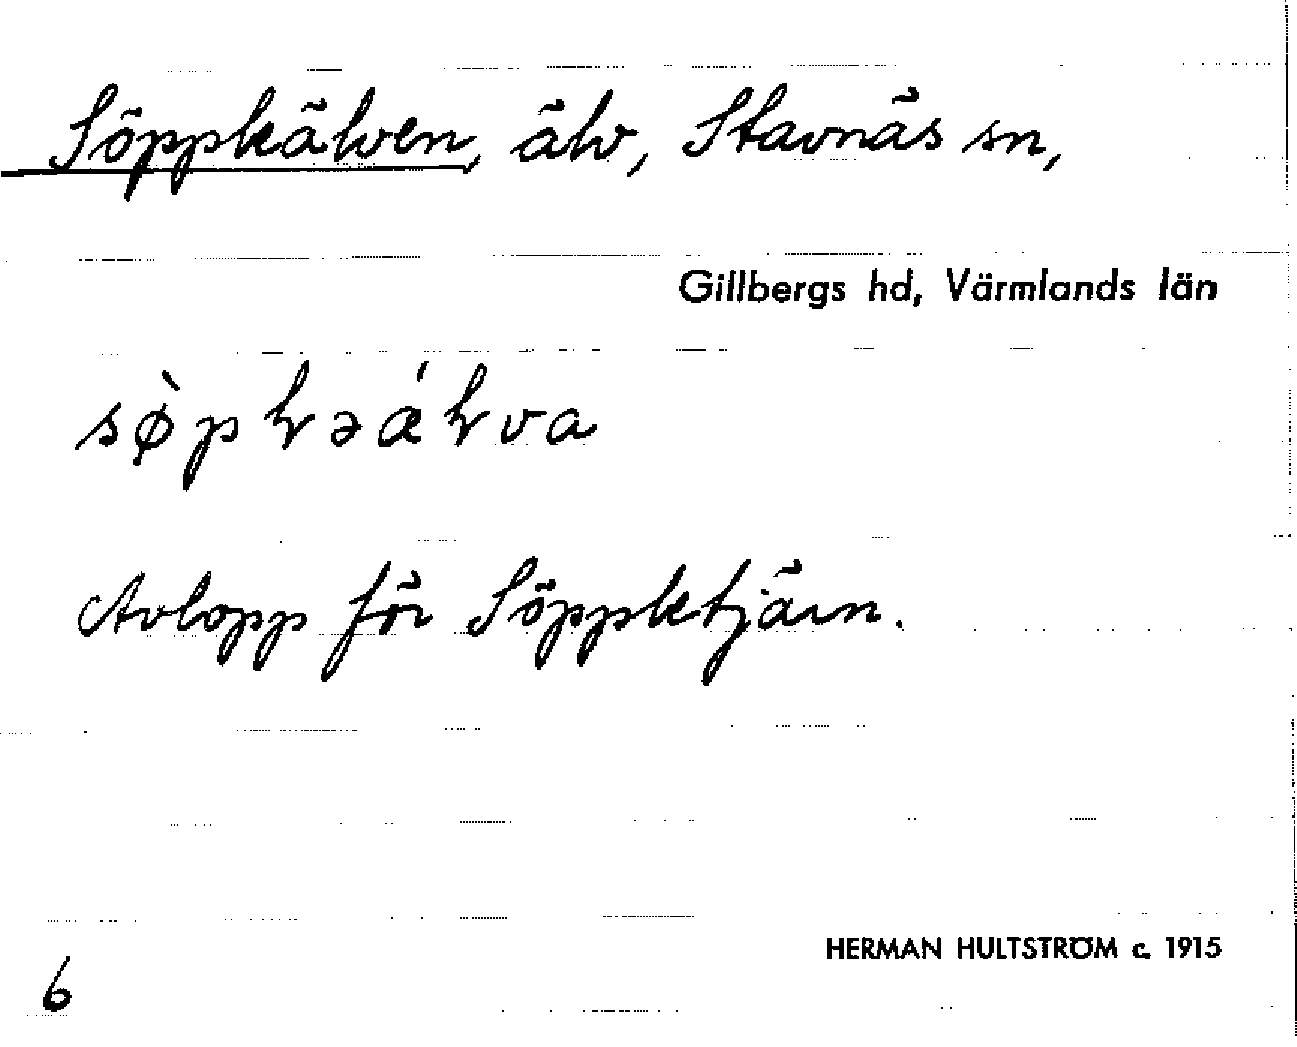 Söppkälven, älv, Stavnäs sn,
Gillbergs hd, Värmlands län
Avlopp för Söppktjärn.
HERMAN HULTSTRÖM c. 1915
6